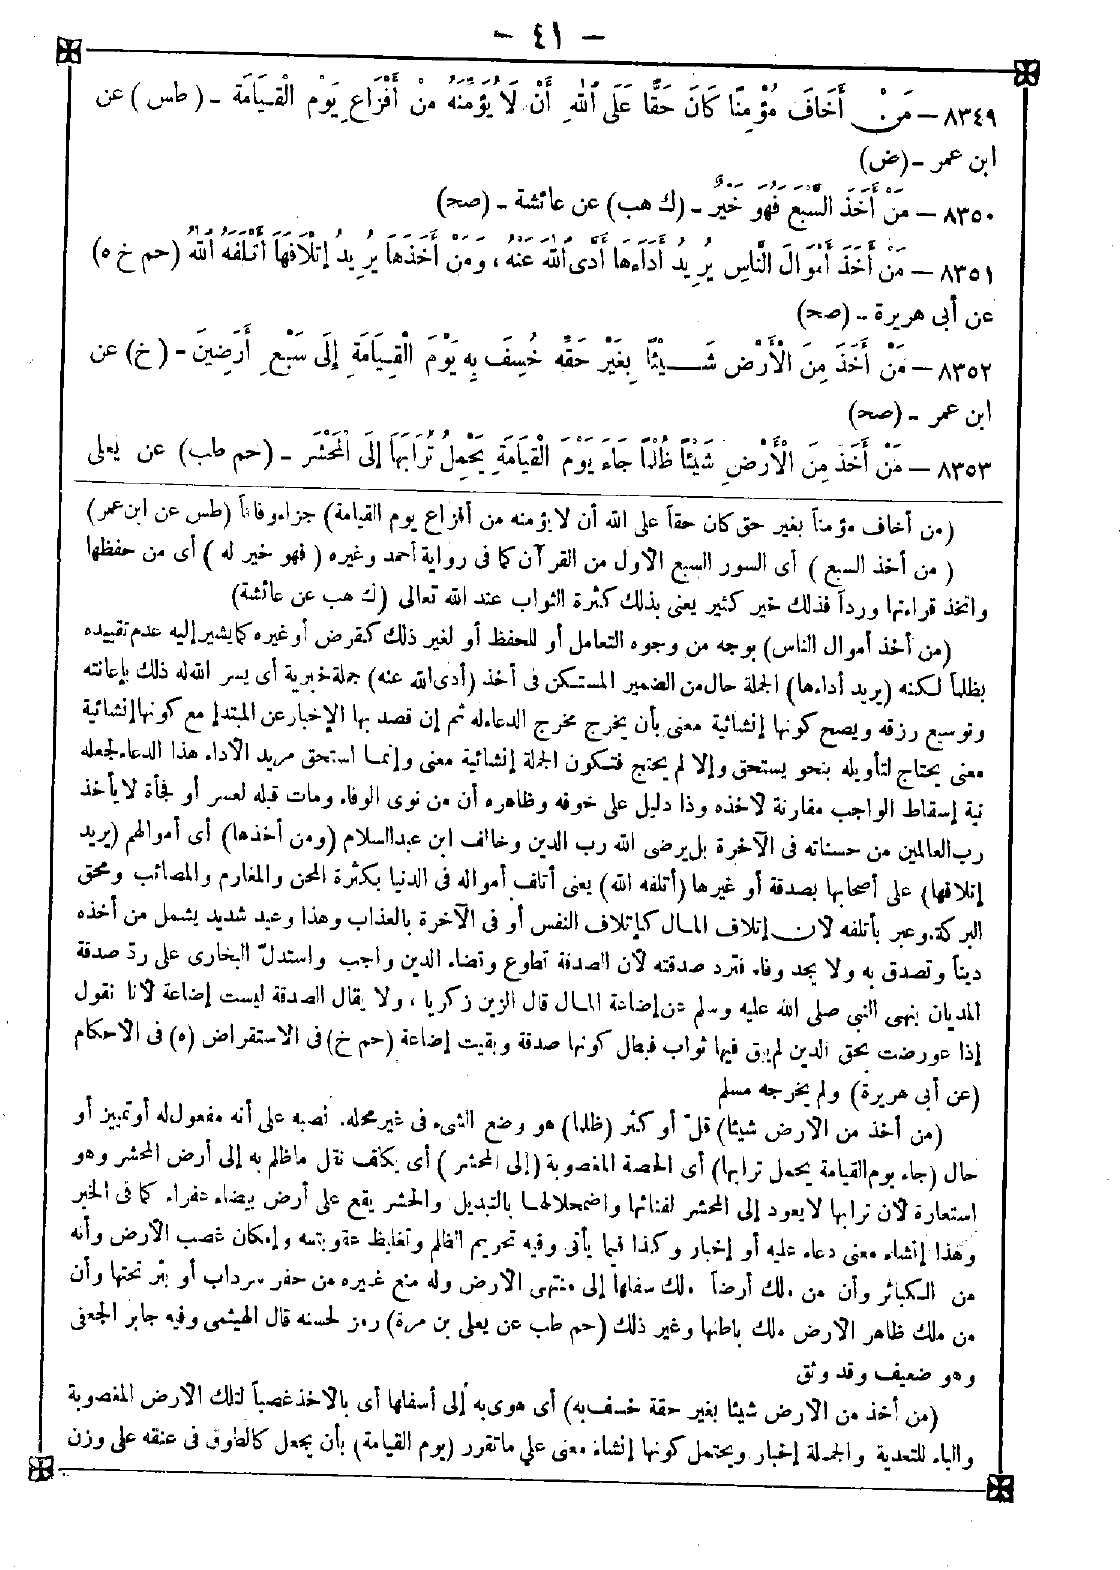 - ٤١ -
٨٣٤٩ - مَنْ أَخَافَ مُؤْمِنًا كَانَ حَقًّا عَلَى اللهِ أَنْ لَا يُؤْمِنَهُ مِنْ أَفْزَاعِ يَوْمِ الْقِيَامَةِ - (طس) عن
ابن عمر - (ض)
٨٣٥٠ - مَنْ أَخَذَ السَّبْعَ فَهُوَ خَيْرٌ - (ك هب) عن عائشة - (صح)
٨٣٥١ - مَنْ أَخَذَ أَمْوَالَ النَّاسِ يُرِيدُ أَدَاءَهَا أَدَّى اللهُ عَنْهُ، وَمَنْ أَخَذَهَا يُرِيدُ إِتْلَافَهَا أَتْلَفَهُ اللهُ (حم خ ه)
عن أبى هريرة - (صح)
٨٣٥٢ - مَنْ أَخَذَ مِنَ الْأَرْضِ شَيْئًا بِغَيْرِ حَقِّهِ خُسِفَ بِهِ يَوْمَ الْقِيَامَةِ إِلَى سَبْعِ أَرَضِينَ - (خ) عن
ابن عمر - (صح)
٨٣٥٣ - مَنْ أَخَذَ مِنَ الْأَرْضِ شَيْئًا ظُلْمًا جَاءَ يَوْمَ الْقِيَامَةِ يَحْمِلُ تُرَابَهَا إِلَى الْمَحْشَرِ - (حم طب) عن يعلى
(من أخاف مؤمناً بغير حق كان حقاً على الله أن لا يؤمنه من أفزاع يوم القيامة) جزاء وفاقاً (طس عن ابن عمر)
(من أخذ السبع) أى السور السبع الأول من القرآن كما فى رواية أحمد وغيره (فهو خير له) أى من حفظها
واتخذ قراءتها ورداً فذلك خير كثير يعنى بذلك كثرة الثواب عند الله تعالى (ك هب عن عائشة)
(من أخذ أموال الناس) بوجه من وجوه التعامل أو للحفظ أو لغير ذلك كقرض أو غيره كما يشير إليه عدم تقييده
بظلماً لكنه (يريد أداءها) الجملة حال من الضمير المستكن فى أخذ (أدى الله عنه) جملة خبرية أى يسر الله له ذلك بإعانته
وتوسيع رزقه ويصح كونها إنشائية معنى بأن يخرج مخرج الدعاء له ثم إن قصد بها الإخبار عن المبتدإ مع كونها إنشائية
معنى يحتاج لتأويله بنحو يستحق وإلا لم يحتج فتكون الجملة إنشائية معنى وإنما استحق مريد الأداء هذا الدعاء لجعله
نية إسقاط الواجب مقارنة لأخذه وذا دليل على خوفه وظاهره أن من نوى الوفاء ومات قبله لعسر أو فجأة لا يأخذ
رب العالمين من حسناته فى الآخرة بل يرضى الله رب الدين وخالف ابن عبد السلام (ومن أخذها) أى أموالهم (يريد
إتلافها) على أصحابها بصدقة أو غيرها (أتلفه الله) يعنى أتلف أمواله فى الدنيا بكثرة المحن والمغارم والمصائب ومحق
البركة. وعبر بأتلفه لأن إتلاف المال كإتلاف النفس أو فى الآخرة بالعذاب وهذا وعيد شديد يشمل من أخذه
ديناً وتصدق به ولا يجد وفاء فترد صدقته لأن الصدقة تطوع وقضاء الدين واجب واستدلّ البخارى على ردّ صدقة
المديان بنهى النبى صلى الله عليه وسلم عن إضاعة المال قال الزين زكريا، ولا يقال الصدقة ليست إضاعة لأنا نقول
إذا عورضت بحق الدين لم يبق فيها ثواب فبطل كونها صدقة وبقيت إضاعة (حم خ) فى الاستقراض (ه) فى الأحكام
(عن أبى هريرة) ولم يخرجه مسلم
(من أخذ من الأرض شيئا) قلّ أو كثر (ظلما) هو وضع الشىء فى غير محله. نصبه على أنه مفعول له أو تمييز أو
حال (جاء يوم القيامة يحمل ترابها) أى الحصة المغصوبة (إلى المحشر) أى يكلف نقل ما ظلم به إلى أرض المحشر وهو
استعارة لأن ترابها لا يعود إلى المحشر لفنائها واضمحلالها بالتبديل والحشر يقع على أرض بيضاء عفراء كما فى الخبر
وهذا إنشاء معنى دعاء عليه أو إخبار وكذا فيما يأتى وفيه تحريم الظلم وتغليظ عقوبته وإمكان غصب الأرض وأنه
من الكبائر وأن من ملك أرضاً ملك سفلها إلى منتهى الأرض وله منع غيره من حفر سرداب أو بئر تحتها وأن
من ملك ظاهر الأرض ملك باطنها وغير ذلك (حم طب عن يعلى بن مرة) رمز لحسنه قال الهيثمى وفيه جابر الجعفى
وهو ضعيف وقد وثق
(من أخذ من الأرض شيئا بغير حقه خسف به) أى هوى به إلى أسفلها أى بالأخذ غصباً لتلك الأرض المغصوبة
والباء للتعدية والجملة إخبار ويحتمل كونها إنشاء معنى على ما تقرر (يوم القيامة) بأن يجعل كالطوق فى عنقه على وزن